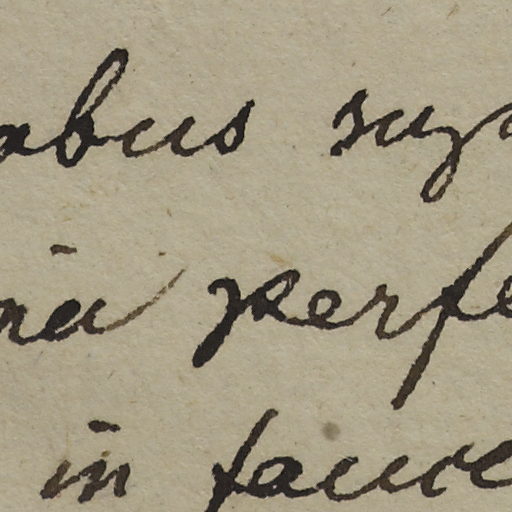 abus sup
na perfe
in fauce